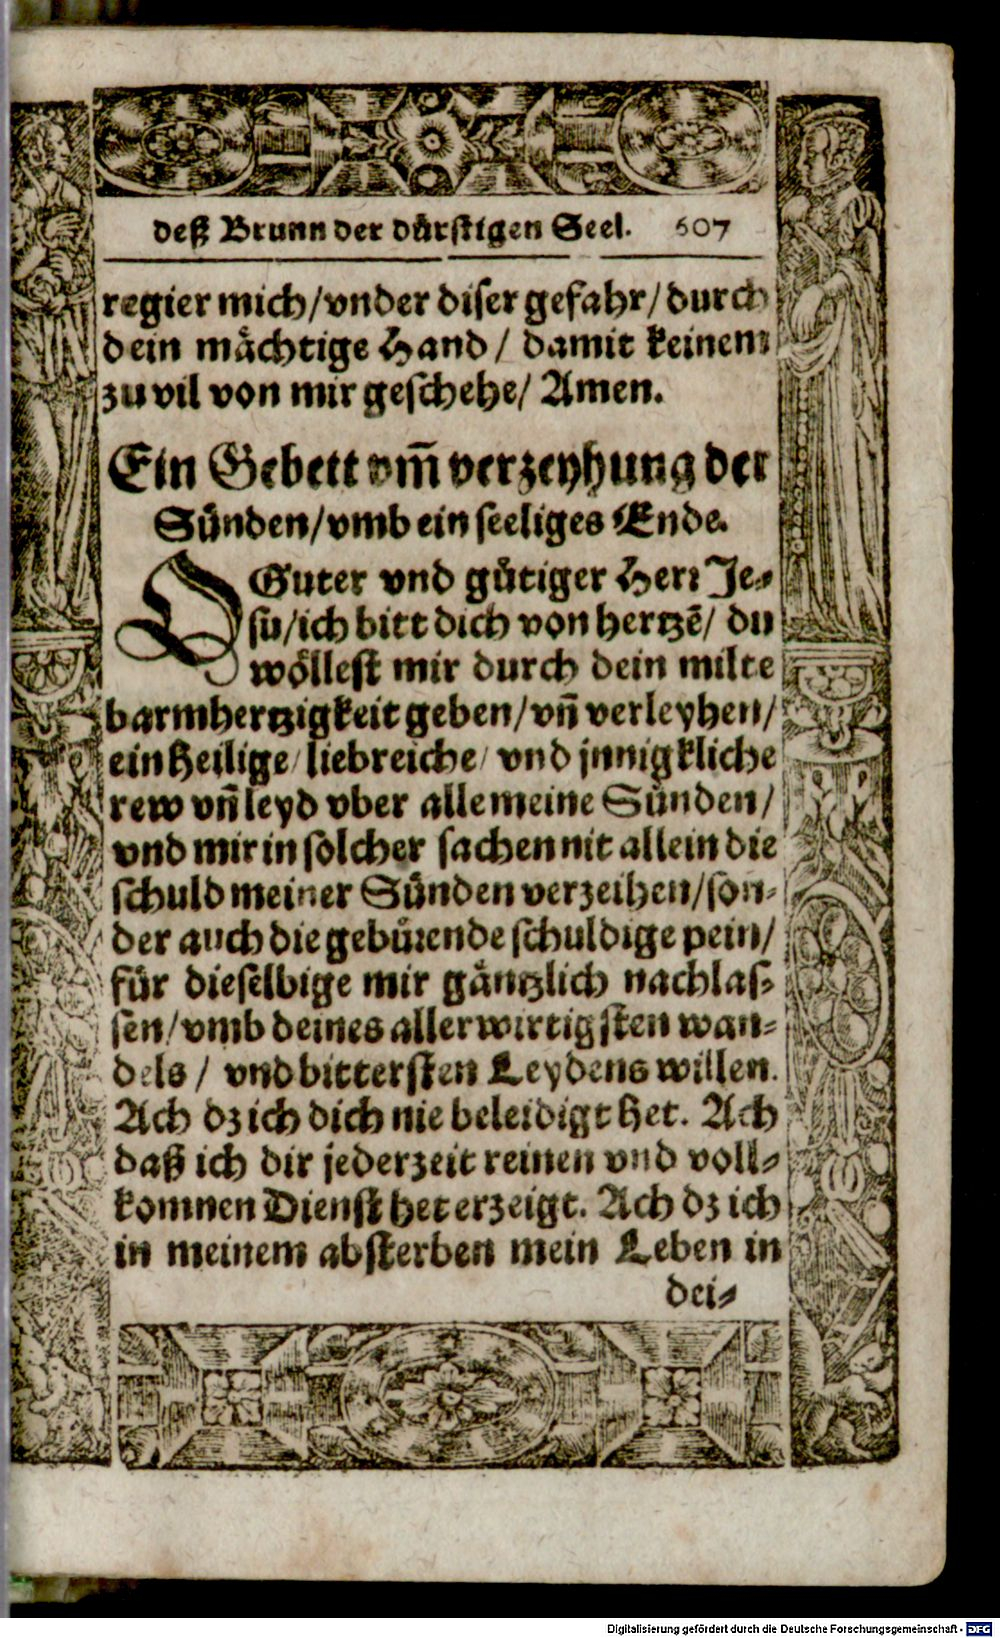 deß Brunn der dürstigen Seel. 607
regier mich/vnder diser gefahr/durch
dein mächtige Hand/ damit keinem
zu vil von mir geschehe/ Amen.
Ein Gebett vm̃ verzeyhung der
Sünden/vmb ein seeliges Ende.
O Guter vnd gütiger Herr Je-
su/ich bitt dich von hertzē/ du
wöllest mir durch dein milte
barmhertzigkeit geben/vñ verleyhen/
ein heilige/liebreiche/ vnd jnnigkliche
rew vñ leyd vber alle meine Sünden/
vnd mir in solcher sachen nit allein die
schuld meiner Sünden verzeihen/son-
der auch die gebürende schuldige pein/
für dieselbige mir gäntzlich nachlas-
sen/vmb deines allerwirtigsten wan-
dels/ vnd bittersten Leydens willen.
Ach dz ich dich nie beleidigt het. Ach
daß ich dir jederzeit reinen vnd voll-
komnen Dienst het erzeigt. Ach dz ich
in meinem absterben mein Leben in
dei-
Digitalisierung gefördert durch die Deutsche Forschungsgemeinschaft - DFG